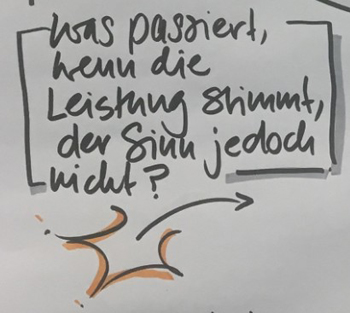 Was passiert,
wenn die
Leistung stimmt,
der Sinn jedoch
nicht?